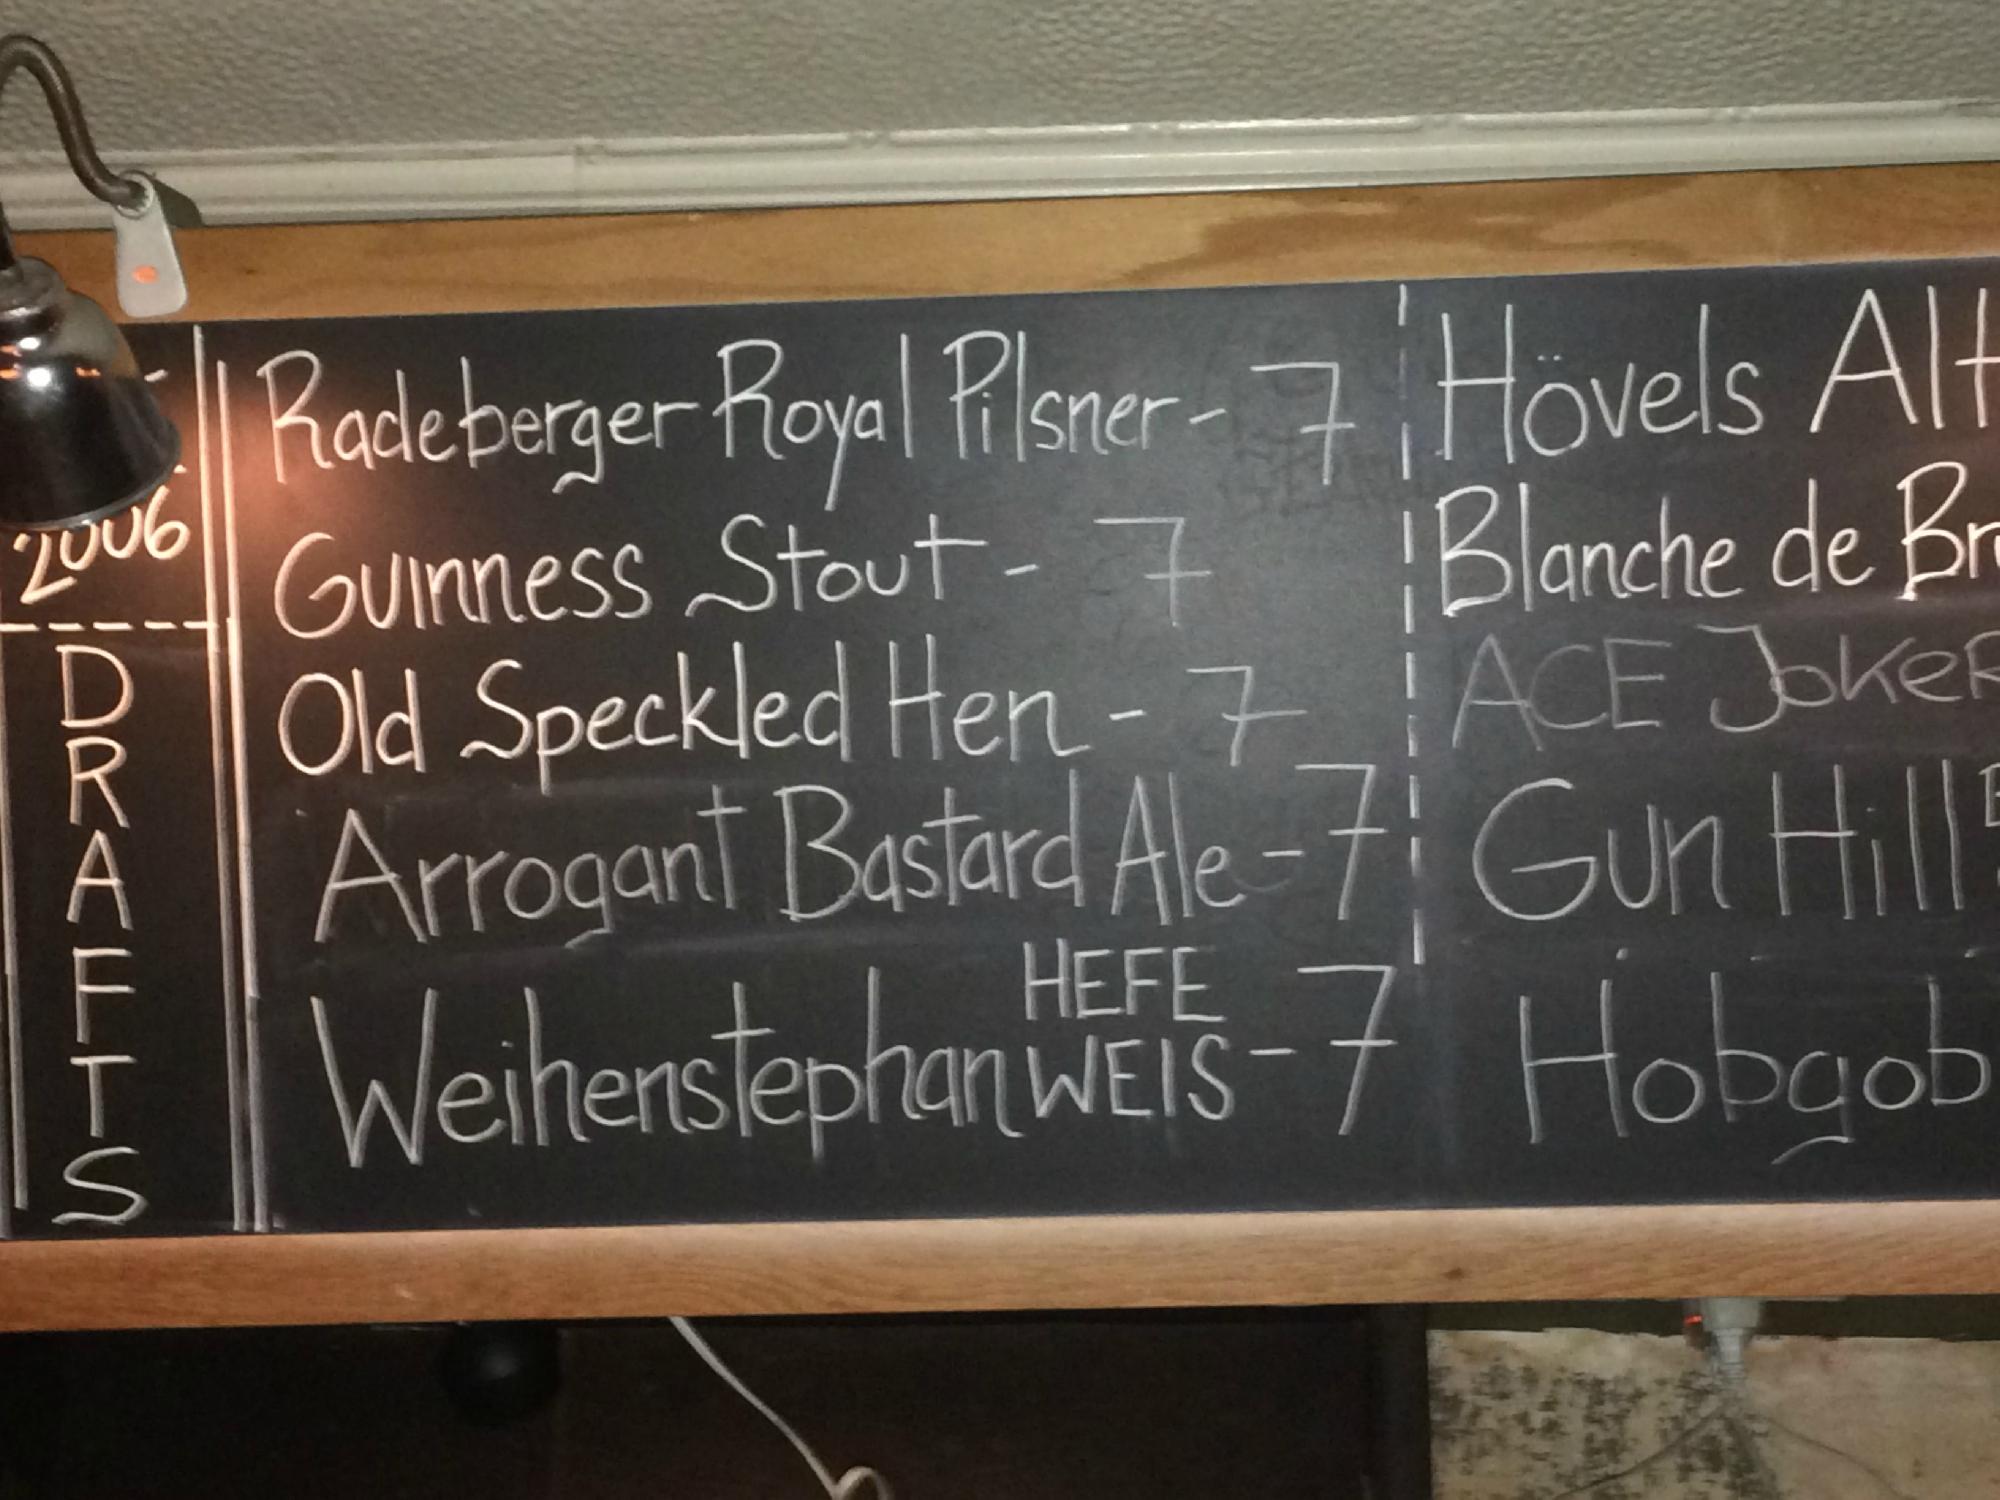 2006
DRAFTS
Radeberger Royal Pilsner - 7
Guinness Stout - 7
Old Speckled Hen - 7
Arrogant Bastard Ale - 7
Weihenstephan HEFE WEIS - 7
Hövels Alt
Blanche de Br
ACE JOKER
Gun Hill
Hobgob